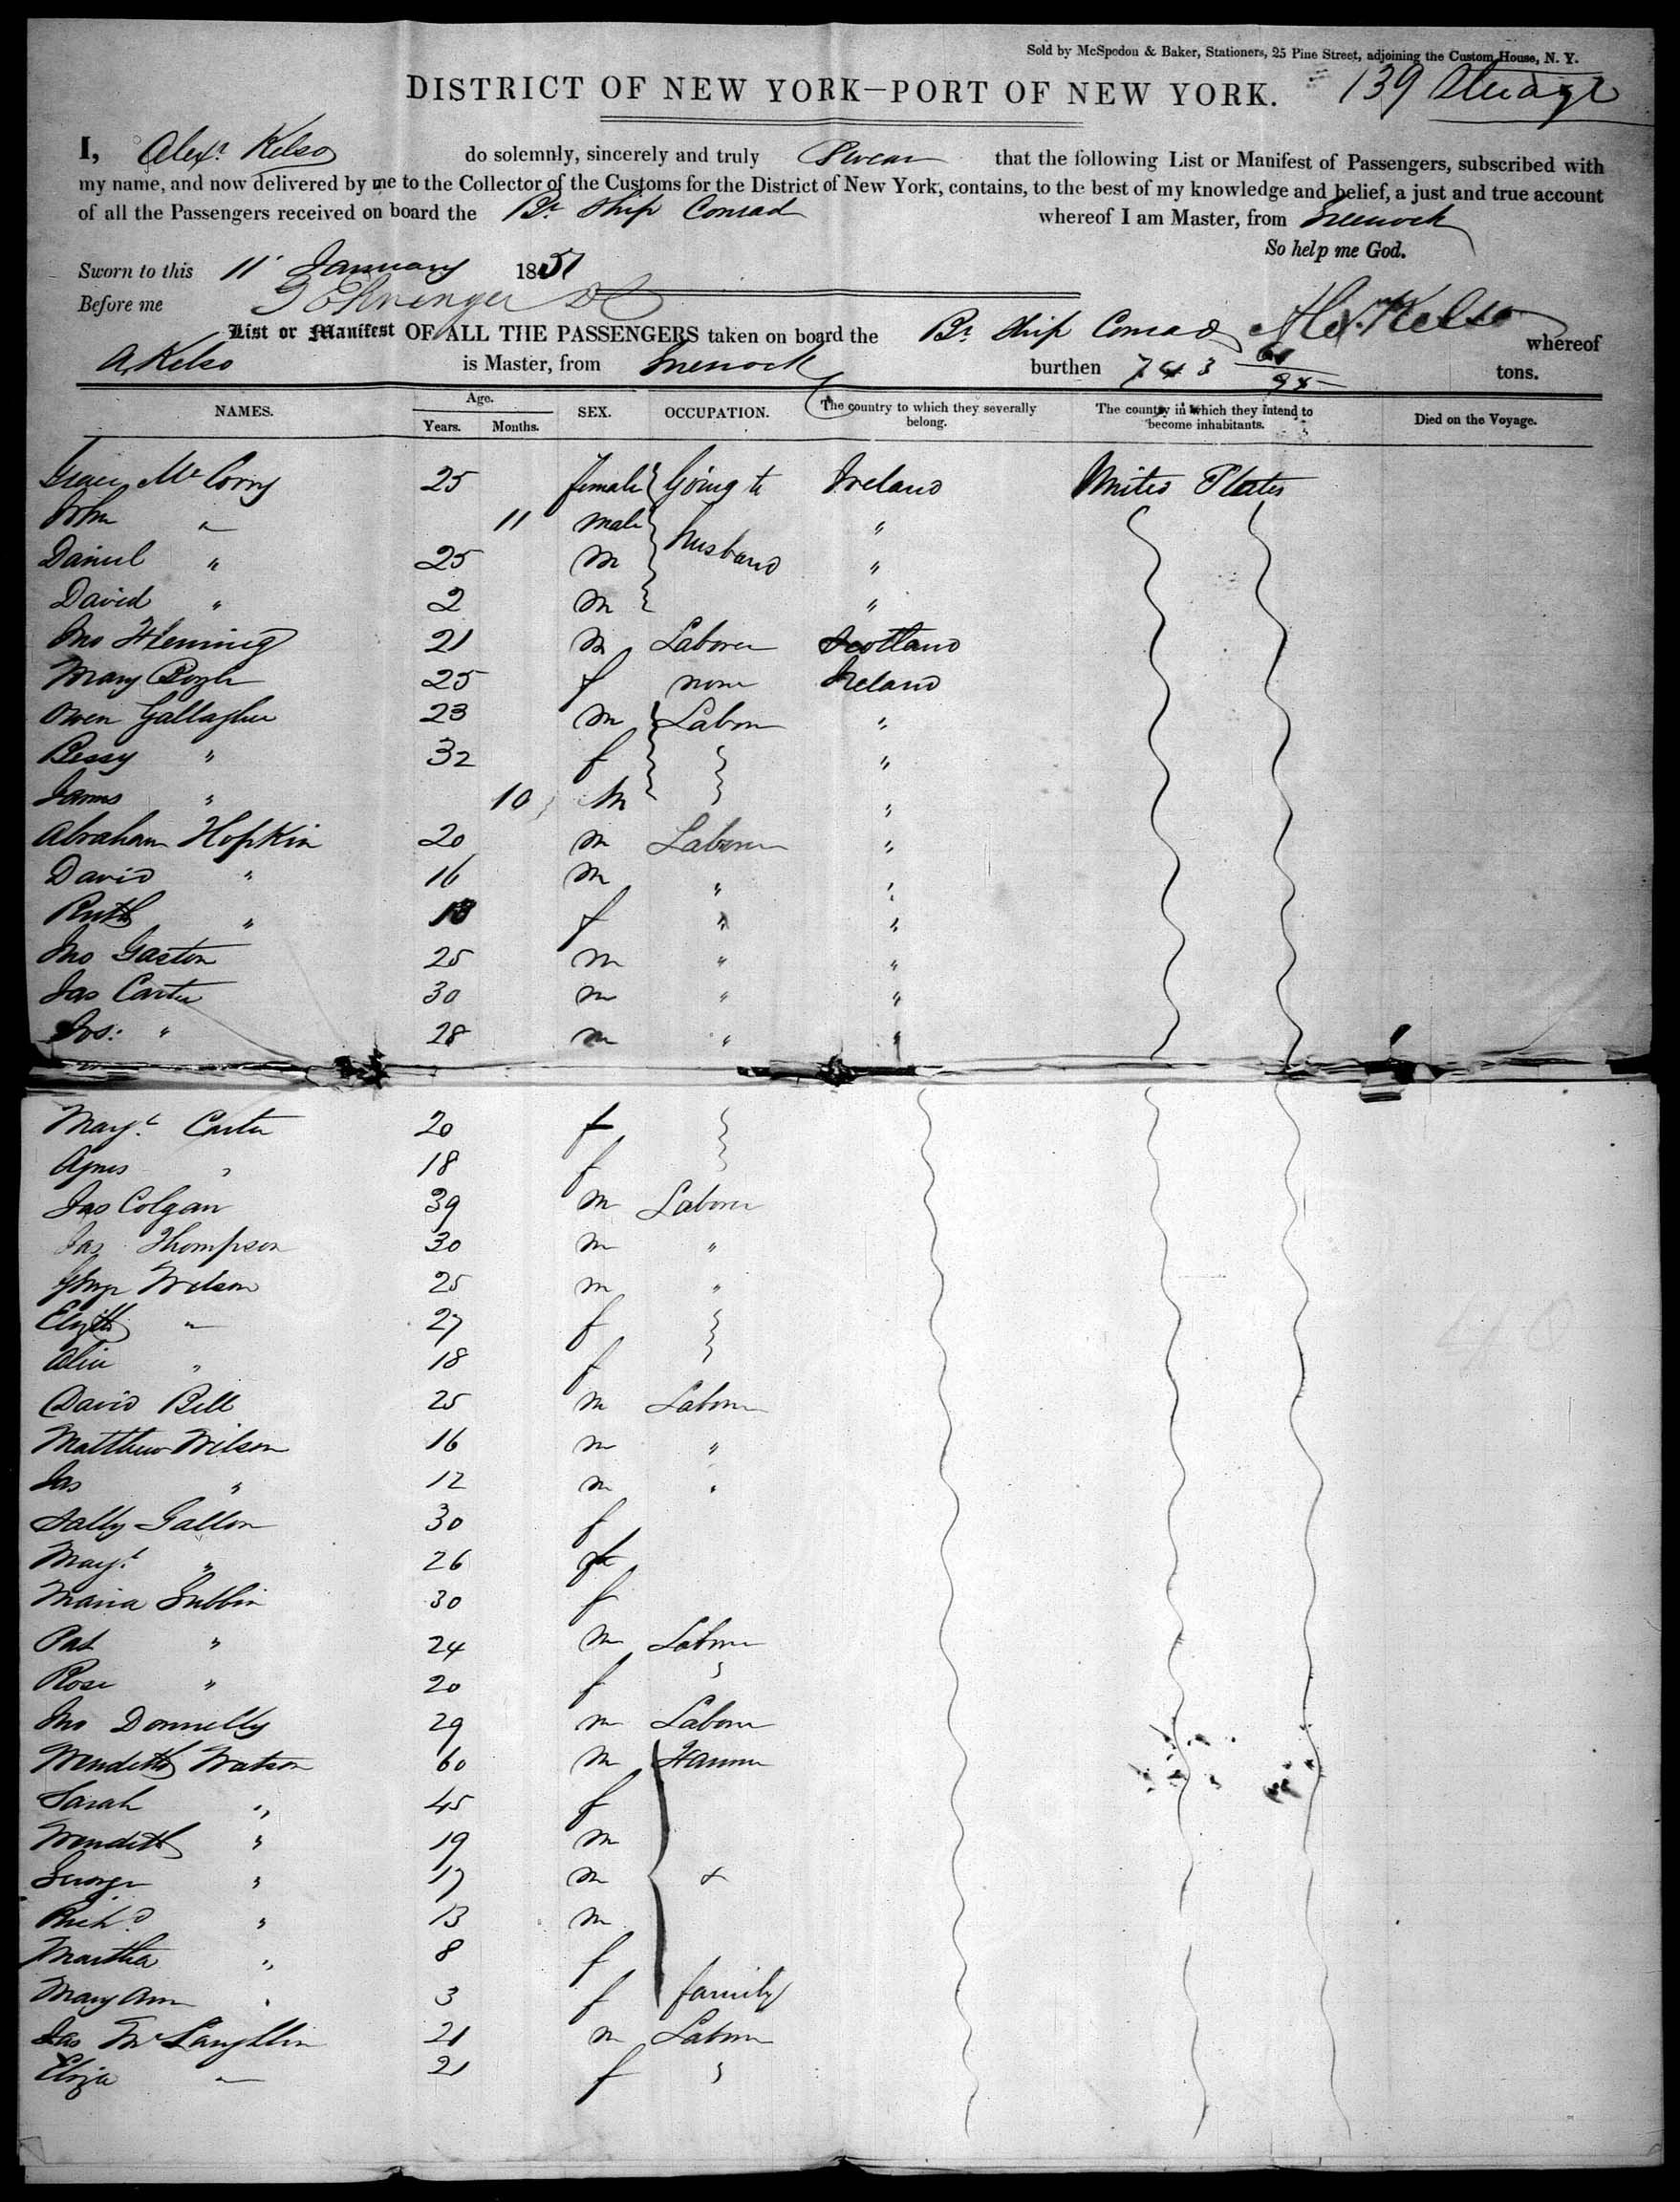 Sold by McSpedon & Baker, Stationers, 25 Pine Street, adjoining the Custom House, N. Y.
DISTRICT OF NEW YORK—PORT OF NEW YORK. 139 Steerage
I, Alexr Kelso do solemnly, sincerely and truly Swear that the following List or Manifest of Passengers, subscribed with
my name, and now delivered by me to the Collector of the Customs for the District of New York, contains, to the best of my knowledge and belief, a just and true account
of all the Passengers received on board the Br Ship Conrad whereof I am Master, from Greenock
So help me God.
Sworn to this 11 January 1851
Before me
Alex. Kelso
List or Manifest OF ALL THE PASSENGERS taken on board the Br Ship Conrad whereof
A Kelso is Master, from Greenock burthen 743 tons.
NAMES. Age. Years. Months. SEX. OCCUPATION. The country to which they severally belong. The country in which they intend to become inhabitants. Died on the Voyage.
Grace Mc 25 female Going to Ireland United States
John " 11 male husband "
Daniel " 25 m "
David " 2 m "
Jno Fleming 21 m Laborer Scotland
Mary Boyle 25 f none Ireland
Owen Gallagher 23 m Laborer "
Bessy " 32 f "
James " 10 m "
Abraham Hopkin 20 m Laborer "
David " 16 m " "
Ruth " 18 f " "
Jno Gaston 25 m " "
Jas Carter 30 m " "
Jos: " 28 m " "
Margt Carter 20 f
Agnes " 18 f
Jas Colgan 39 m Laborer
Jas Thompson 30 m "
George Wilson 25 m "
Elizth " 27 f
Alice " 18 f
David Bell 25 m Laborer
Matthew Wilson 16 m "
Jas " 12 m "
Sally Gallon 30 f
Margt " 26 f
Maria Gubbin 30 f
Pat " 24 m Laborer
Rose " 20 f "
Jno Donnelly 29 m Laborer
Watson 60 m Farmer
Sarah " 45 f
" 19 m
George " 17 m &
Richd " 13 m
Martha " 8 f
Mary Ann " 3 f family
Jas McLaughlin 21 m Laborer
Eliza " 21 f "